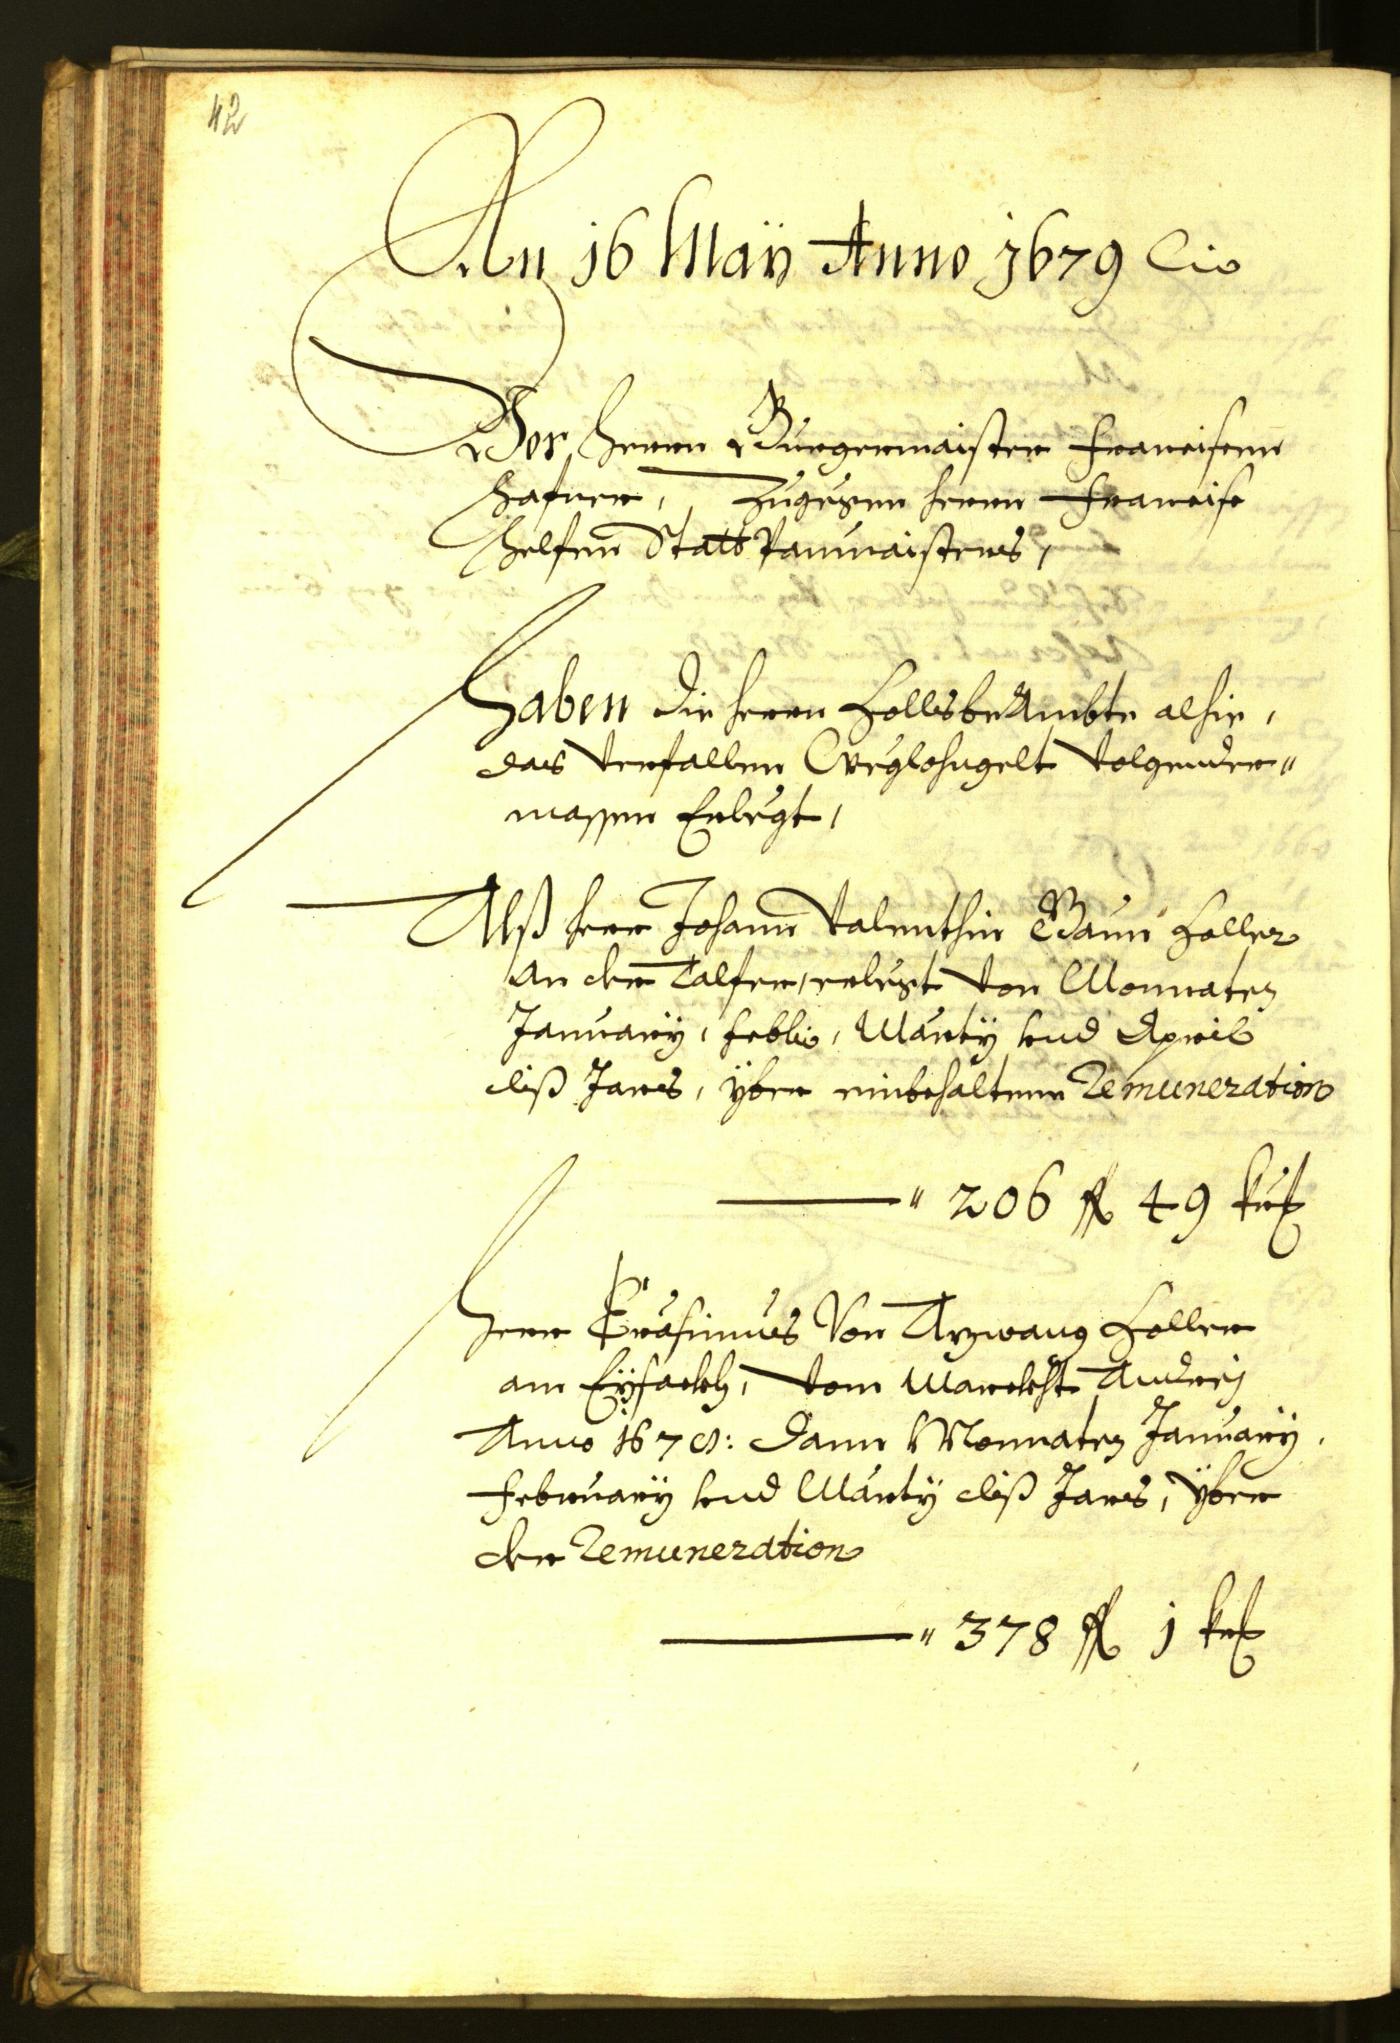 42
An 16 Maÿ Anno 1679
Vor Herrn Burgermaister Francisen
Hafner, Zugegen Herrn Francisc
Helfen Statt Paumaisters,
Haben die Herrn Zollsbeambte alhie,
das verfallen Weglohngelt volgender„
massen Erlegt,
Alß Herr Johann Valenthin Baur Zoller
an der Talfer, erlegt von Monnaten
January, Febr, Marty und April
diß Jars, yber einbehaltene Remuneration
206 fl 49 kr
Herr Erasimus Von Azwang Zoller
am Eÿsackh, vom Marckht Andreij
Anno 1678: dann Monnaten January,
February und Marty diß Jars, yber
der Remuneration
378 fl 1 kr